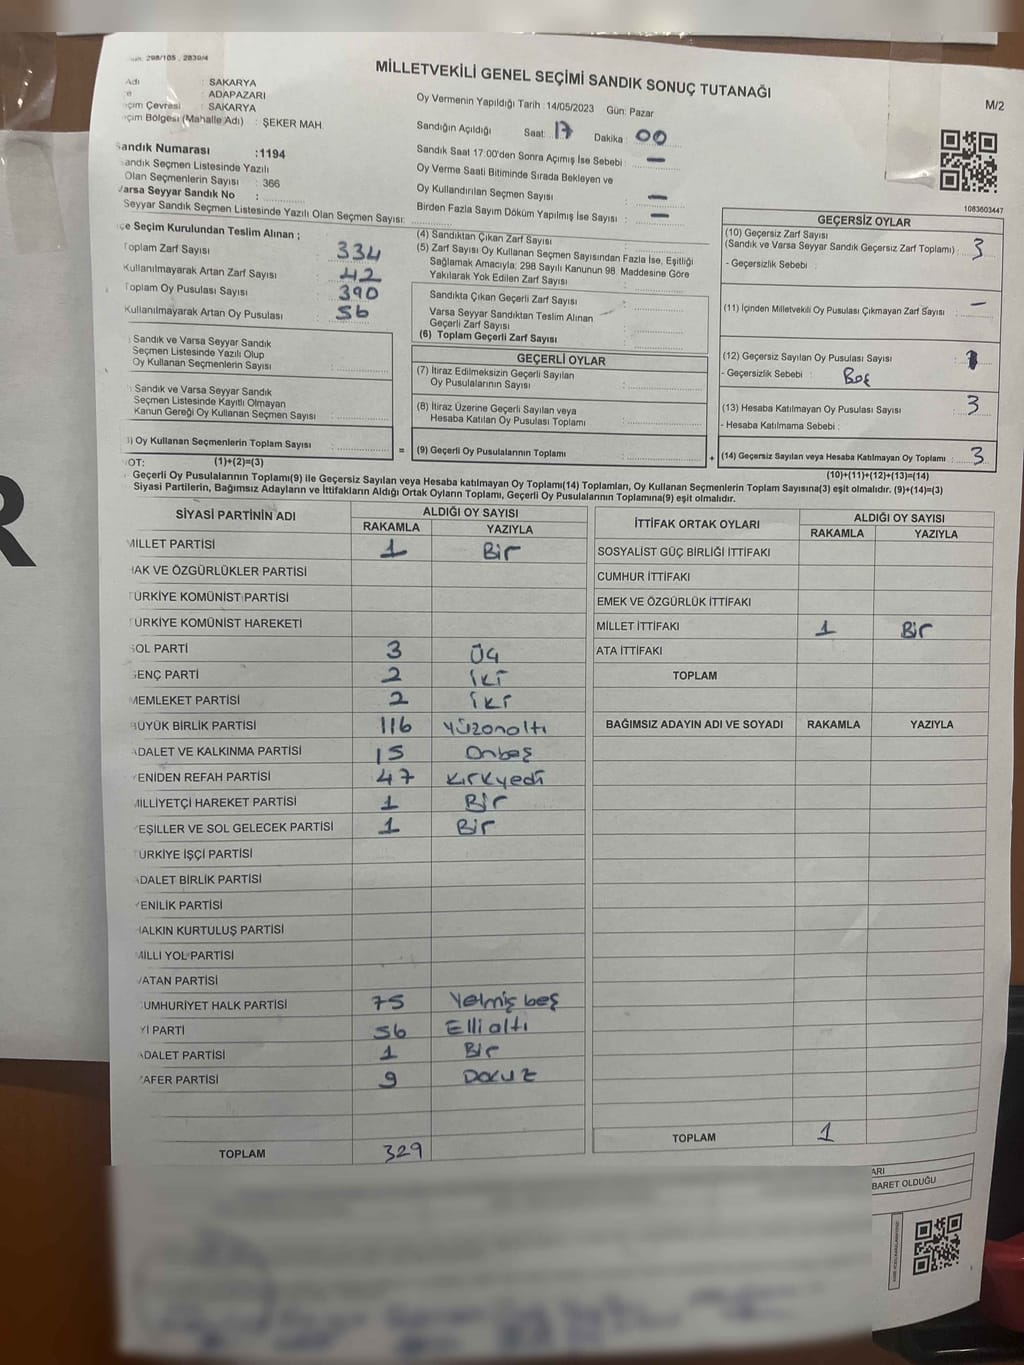 298/105 , 2839/4
MİLLETVEKİLİ GENEL SEÇİMİ SANDIK SONUÇ TUTANAĞI
M/2
Adı : SAKARYA
e : ADAPAZARI
çim Çevresi : SAKARYA
çim Bölgesi (Mahalle Adı) : ŞEKER MAH.
Sandık Numarası :1194
andık Seçmen Listesinde Yazılı
Olan Seçmenlerin Sayısı : 366
Varsa Seyyar Sandık No :
Seyyar Sandık Seçmen Listesinde Yazılı Olan Seçmen Sayısı:
Oy Vermenin Yapıldığı Tarih : 14/05/2023 Gün: Pazar
Sandığın Açıldığı Saat: 17 Dakika : 00
Sandık Saat 17:00'den Sonra Açımış İse Sebebi : —
Oy Verme Saati Bitiminde Sırada Bekleyen ve
Oy Kullandırılan Seçmen Sayısı : —
Birden Fazla Sayım Döküm Yapılmış İse Sayısı : —
1083603447
çe Seçim Kurulundan Teslim Alınan ;
Toplam Zarf Sayısı : 334
Kullanılmayarak Artan Zarf Sayısı : 42
Toplam Oy Pusulası Sayısı : 390
Kullanılmayarak Artan Oy Pusulası : 56
) Sandık ve Varsa Seyyar Sandık
Seçmen Listesinde Yazılı Olup
Oy Kullanan Seçmenlerin Sayısı :
) Sandık ve Varsa Seyyar Sandık
Seçmen Listesinde Kayıtlı Olmayan
Kanun Gereği Oy Kullanan Seçmen Sayısı :
3) Oy Kullanan Seçmenlerin Toplam Sayısı :
=
(4) Sandıktan Çıkan Zarf Sayısı :
(5) Zarf Sayısı Oy Kullanan Seçmen Sayısından Fazla İse, Eşitliği
Sağlamak Amacıyla; 298 Sayılı Kanunun 98. Maddesine Göre
Yakılarak Yok Edilen Zarf Sayısı :
Sandıkta Çıkan Geçerli Zarf Sayısı :
Varsa Seyyar Sandıktan Teslim Alınan
Geçerli Zarf Sayısı :
(6) Toplam Geçerli Zarf Sayısı :
GEÇERLİ OYLAR
(7) İtiraz Edilmeksizin Geçerli Sayılan
Oy Pusulalarının Sayısı :
(8) İtiraz Üzerine Geçerli Sayılan veya
Hesaba Katılan Oy Pusulası Toplamı :
(9) Geçerli Oy Pusulalarının Toplamı :
+
GEÇERSİZ OYLAR
(10) Geçersiz Zarf Sayısı
(Sandık ve Varsa Seyyar Sandık Geçersiz Zarf Toplamı) : 3
- Geçersizlik Sebebi :
(11) İçinden Milletvekili Oy Pusulası Çıkmayan Zarf Sayısı : —
(12) Geçersiz Sayılan Oy Pusulası Sayısı :
- Geçersizlik Sebebi : Boş
(13) Hesaba Katılmayan Oy Pusulası Sayısı : 3
- Hesaba Katılmama Sebebi :
(14) Geçersiz Sayılan veya Hesaba Katılmayan Oy Toplamı : 3
OT: (1)+(2)=(3) (10)+(11)+(12)+(13)=(14)
Geçerli Oy Pusulalarının Toplamı(9) ile Geçersiz Sayılan veya Hesaba katılmayan Oy Toplamı(14) Toplamları, Oy Kullanan Seçmenlerin Toplam Sayısına(3) eşit olmalıdır. (9)+(14)=(3)
Siyasi Partilerin, Bağımsız Adayların ve İttifakların Aldığı Ortak Oyların Toplamı, Geçerli Oy Pusulalarının Toplamına(9) eşit olmalıdır.
SİYASİ PARTİNİN ADI ALDIĞI OY SAYISI
RAKAMLA YAZIYLA
MİLLET PARTİSİ 1 Bir
HAK VE ÖZGÜRLÜKLER PARTİSİ
TÜRKİYE KOMÜNİST PARTİSİ
TÜRKİYE KOMÜNİST HAREKETİ
SOL PARTİ 3 Üç
GENÇ PARTİ 2 İki
MEMLEKET PARTİSİ 2 İki
BÜYÜK BİRLİK PARTİSİ 116 Yüzonaltı
ADALET VE KALKINMA PARTİSİ 15 Onbeş
YENİDEN REFAH PARTİSİ 47 Kırkyedi
MİLLİYETÇİ HAREKET PARTİSİ 1 Bir
YEŞİLLER VE SOL GELECEK PARTİSİ 1 Bir
TÜRKİYE İŞÇİ PARTİSİ
ADALET BİRLİK PARTİSİ
YENİLİK PARTİSİ
HALKIN KURTULUŞ PARTİSİ
MİLLİ YOL PARTİSİ
VATAN PARTİSİ
CUMHURİYET HALK PARTİSİ 75 Yelmiş beş
İYİ PARTİ 56 Elli altı
ADALET PARTİSİ 1 Bir
ZAFER PARTİSİ 9 Dokuz
TOPLAM 329
İTTİFAK ORTAK OYLARI ALDIĞI OY SAYISI
RAKAMLA YAZIYLA
SOSYALİST GÜÇ BİRLİĞİ İTTİFAKI
CUMHUR İTTİFAKI
EMEK VE ÖZGÜRLÜK İTTİFAKI
MİLLET İTTİFAKI 1 Bir
ATA İTTİFAKI
TOPLAM
BAĞIMSIZ ADAYIN ADI VE SOYADI RAKAMLA YAZIYLA
TOPLAM 1
ARI
BARET OLDUĞU
R